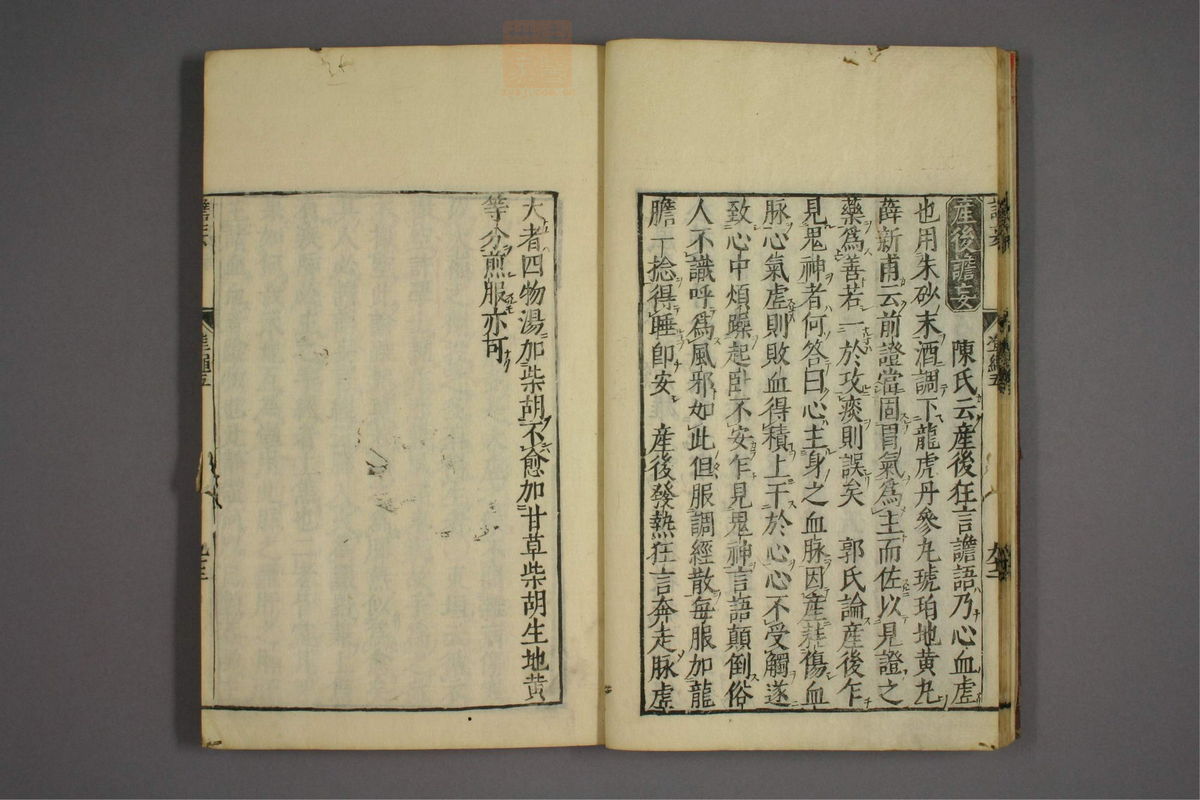 産後譫妄
陳氏云産後狂言譫語乃心血虚
也用朱砂末酒調下龍虎丹參丸琥珀地黄丸
薛新甫云前證當固胃氣爲主而佐以見證之
藥爲善若一於攻痰則誤矣　郭氏論産後乍
見鬼神者何答曰心主身之血脉因産耗傷血
脉心氣虚則敗血得積上干於心心不受觸遂
致心中煩躁起卧不安乍見鬼神言語顛倒俗
人不識呼爲風邪如此但服調經散毎服加龍
膽一捻得睡即安　産後發熱狂言奔走脉虚
大者四物湯加柴胡不愈加甘草柴胡生地黄
等分煎服亦可